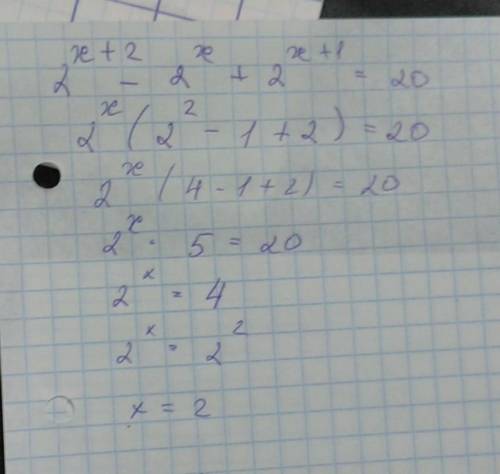 2^{x+2} - 2^{x} + 2^{x+1} = 20
2^{x} (2^{2} - 1 + 2) = 20
2^{x} (4 - 1 + 2) = 20
2^{x} · 5 = 20
2^{x} = 4
2^{x} = 2^{2}
x = 2